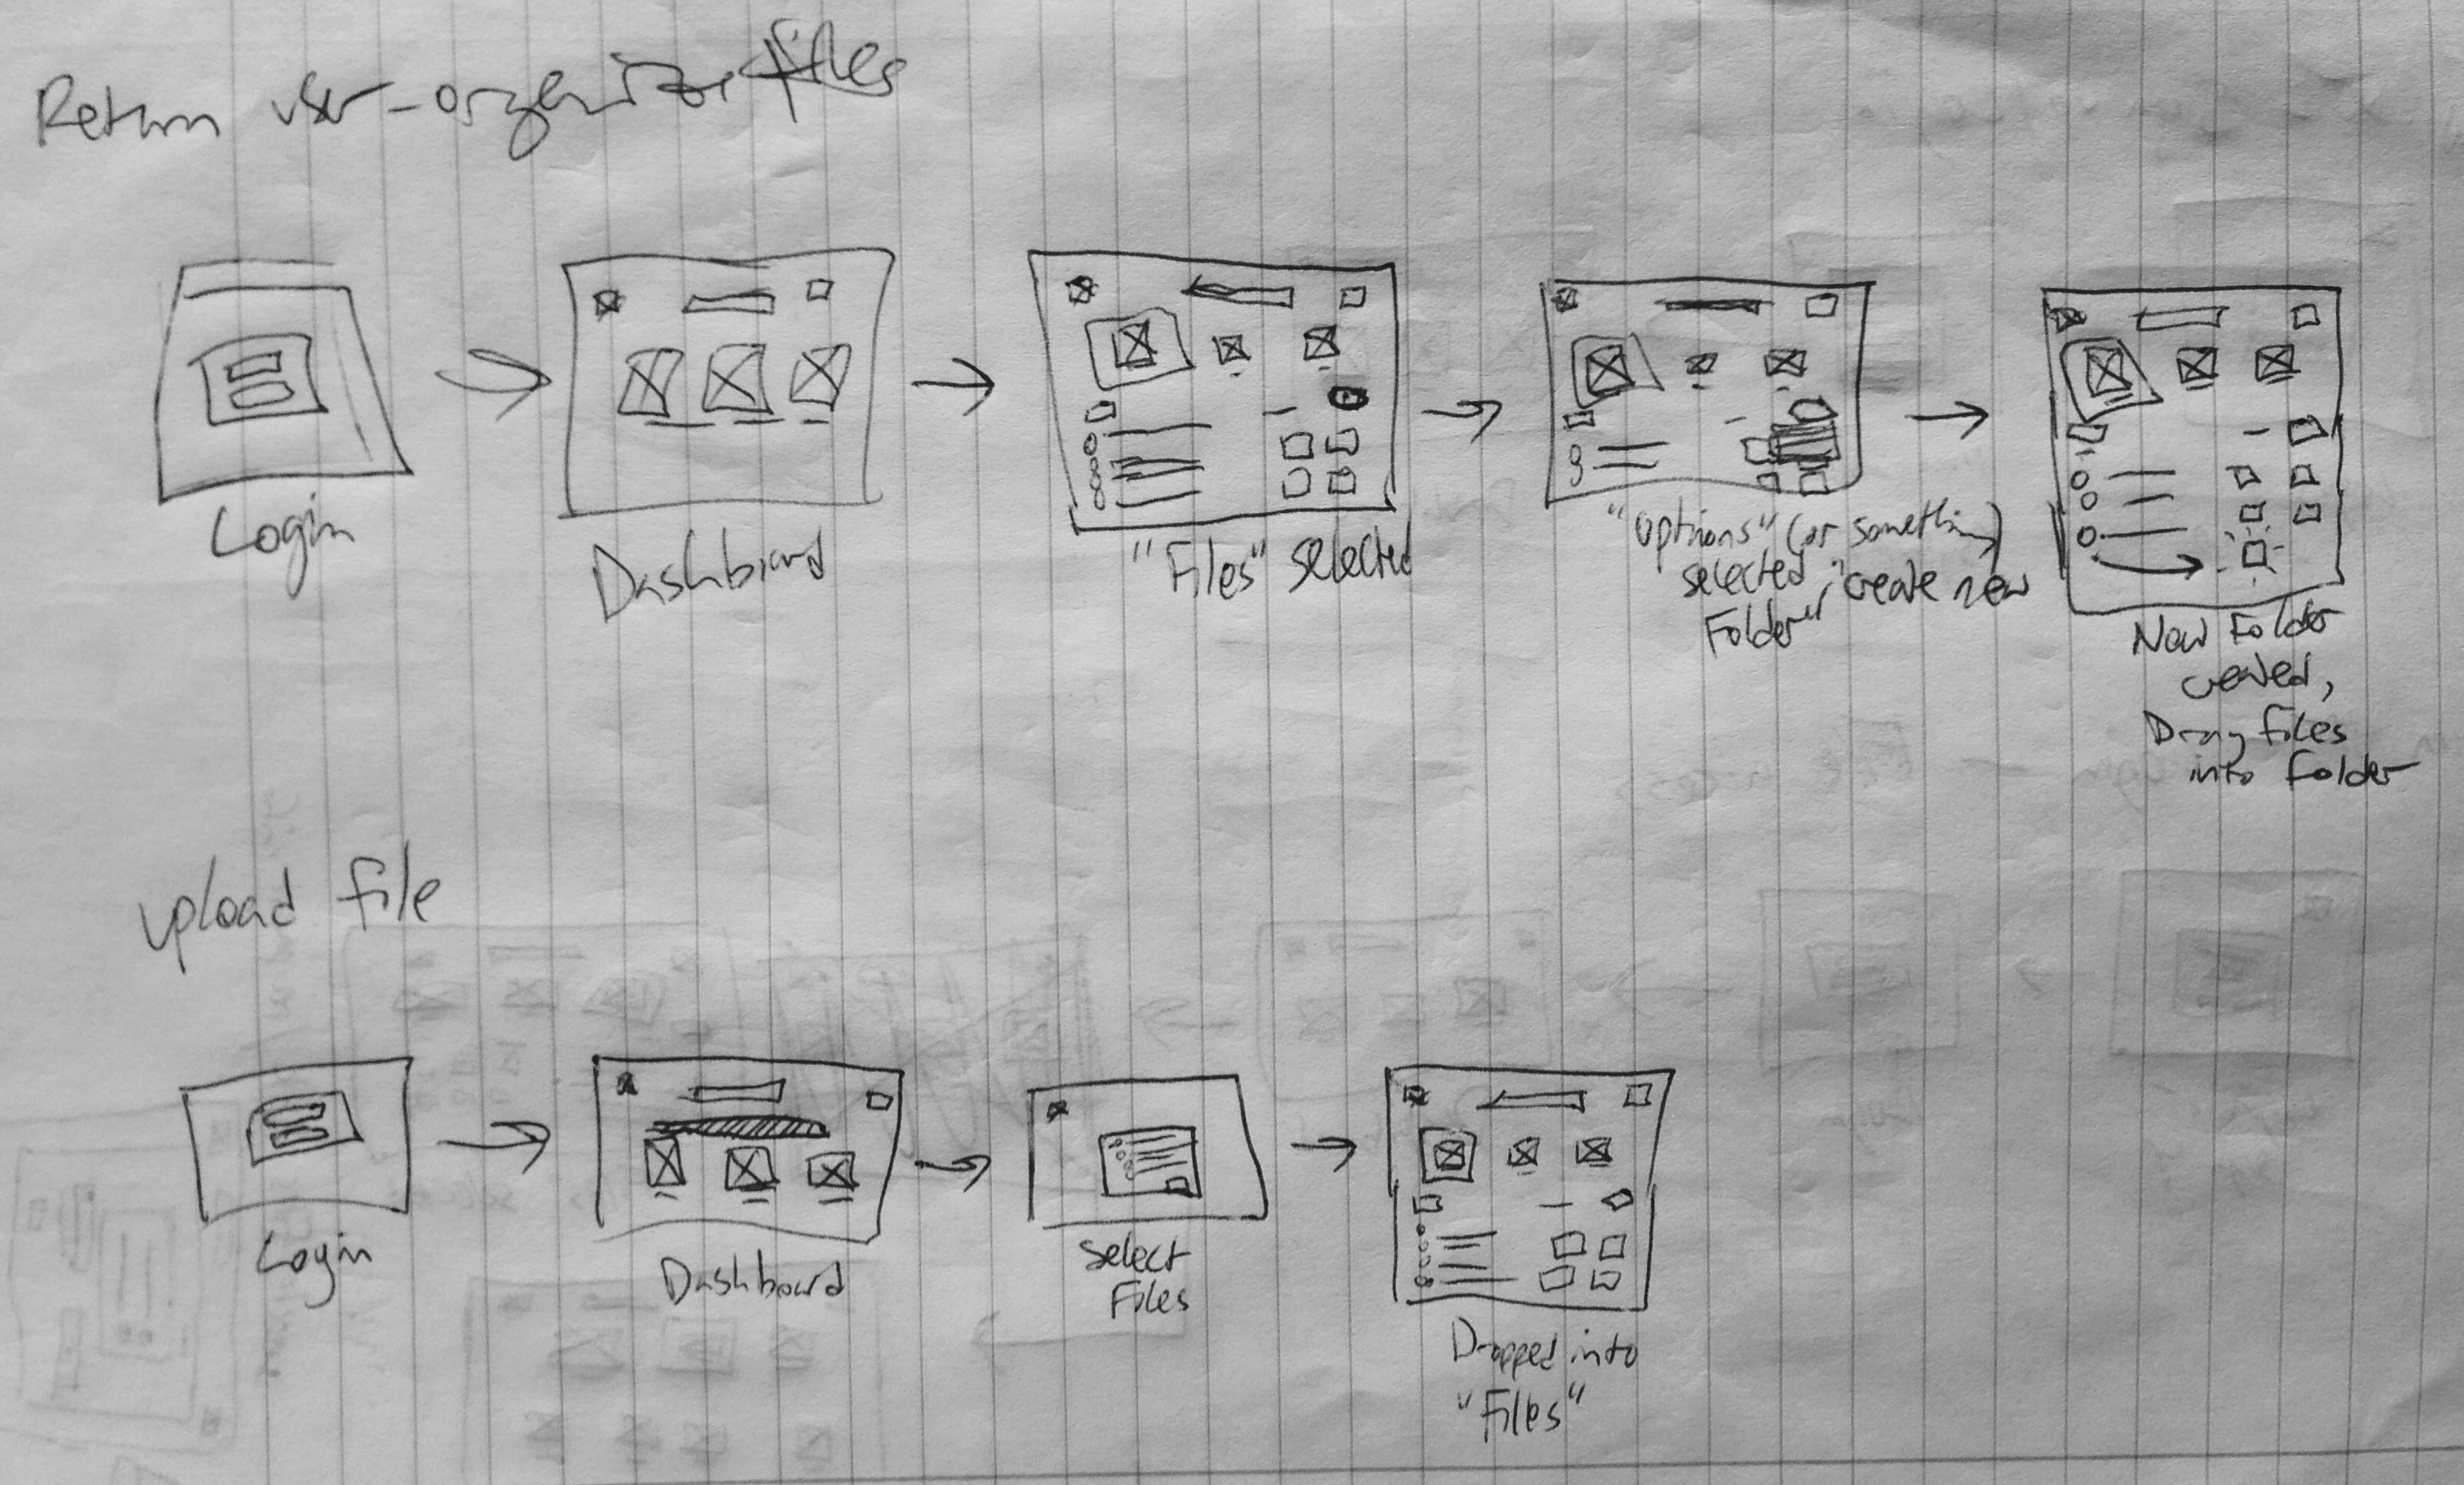 Return user - organizing files
Login
Dashboard
"Files" selected
"options" (or something)
selected, "create new
Folder"
New Folder
created,
Drag files
into folder
upload file
Login
Dashboard
Select
Files
Dropped into
"Files"